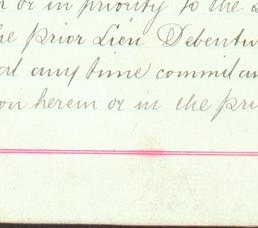 or in priority to the
the Prior Lien Debentu
at any time commit an
on herein or in the pri